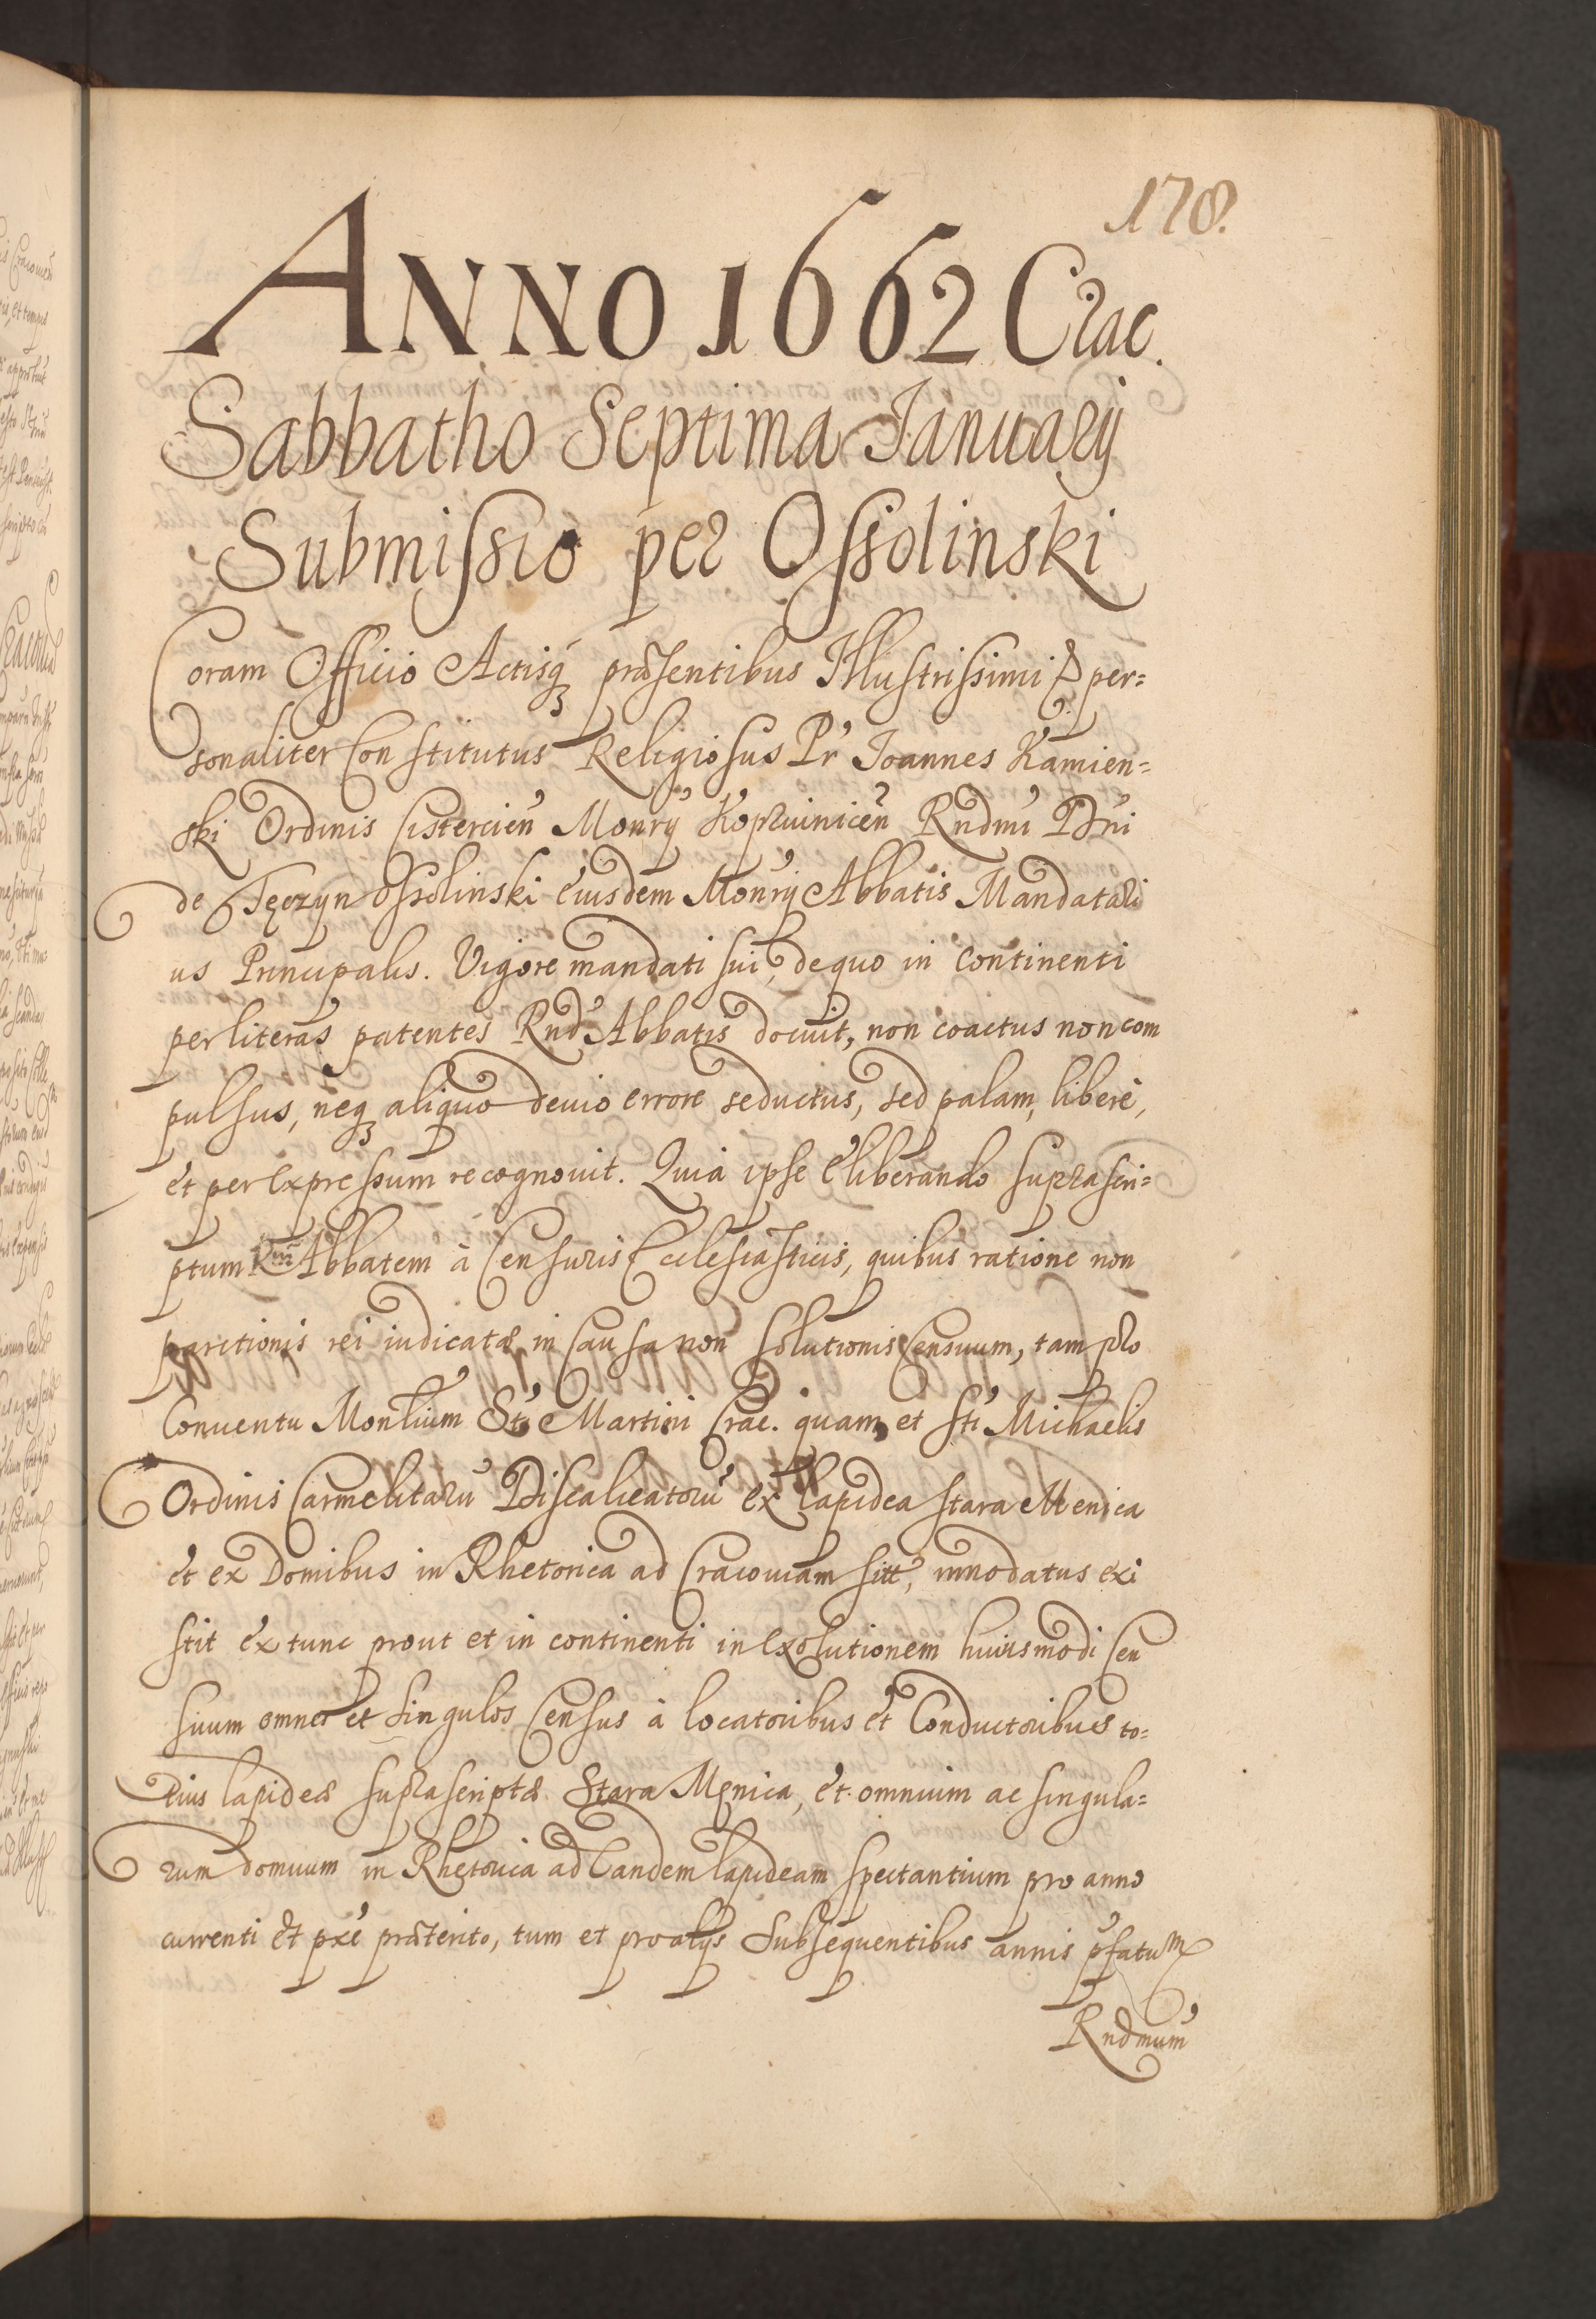 178.
ANNO 1662 Crac.
Sabbatho Septima Januarij
Submissio per Ossolinski
Coram Officio Actisq; præsentibus Illustrissimi & per=
sonaliter Constitutus Religiosus Pr Joannes Kamien=
ski Ordinis Cistercien Monrij Koprzivnicen Rndmi Dni
de Tęczyn Ossolinski eiusdem Monrij Abbatis Mandatari
us Principalis. Vigore mandati sui, de quo in continenti
per literas patentes Rnd Abbatis docuit, non coactus non com
pulsus, neq; aliquo devio errore seductus, sed palam, liberè,
et per expressum recognovit. Quia ipse eliberando suprascri=
ptum Rm Abbatem à Censuris Ecclesiasticis, quibus ratione non
parictionis rei iudicatæ in Causa non solutionis Censuum, tam pro
Conventu Monlium Sti Martini Crac. quam, et Sti Michaelis
Ordinis Carmelitarū Discalceatorū ex lapidea stara Menica
et ex Domibus in Rhetorica ad Cracoviam sitt, innodatus exi
stit ex tunc prout et in continenti in exolutionem huiusmodi Cen
suum omnes et singulos Census à locatoribus et Conductoribus to=
tius lapideæ suprascriptæ Stara Menica, et omnium ac singula=
rum domuum in Rhetorica ad Eandem lapideam spectantium pro anno
currenti et pxe præterito, tum et pro alijs Subsequentibus annis pfatum
Rndmum